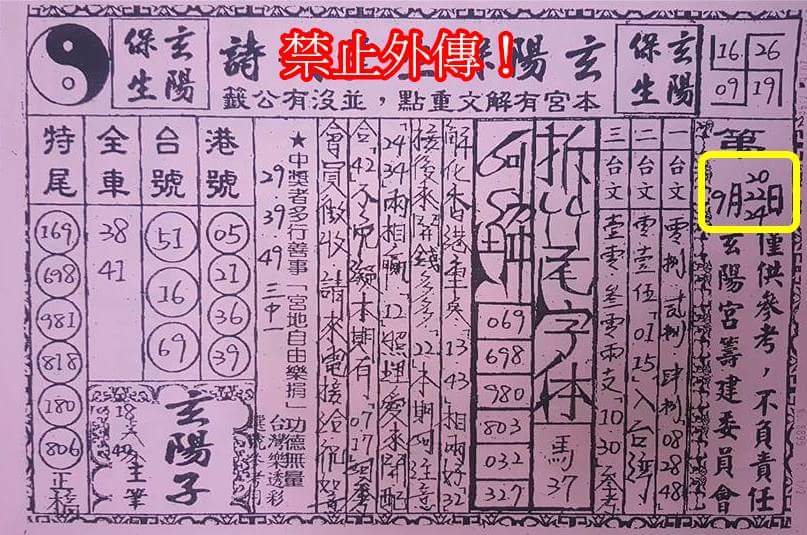 玄陽
保生
玄陽保生
詩
禁止外傳！
玄陽
保生
16 26
09 19
本宮有解文重點，並沒有公籤
第
9月20 22 24日
僅供參考，不負責任
玄陽宮籌建委員會
一台文 零捌.貳捌.肆捌 08 28 48
二台文 零壹伍「01 15」入台灣
三台文 壹零叁零兩支「10 30」參考
拆
尾字体
馬
37
069
698
980
803
032
327
解化本港重矣「13 43」相兩好32
接後來開錢多多多「22」本期
注意
24 34 兩相贏「12」照理愛來開配
合「42」不
本期有「07 17」
會員做收請來電接洽
★中獎者多行善事「宮地自由樂捐」功德無量
台灣樂透彩
29.39.49 三中一
港號
05
21
36
39
台號
51
16
69
全車
38
41
特尾
169
698
981
818
180
806
正
玄陽子
主筆
18
49